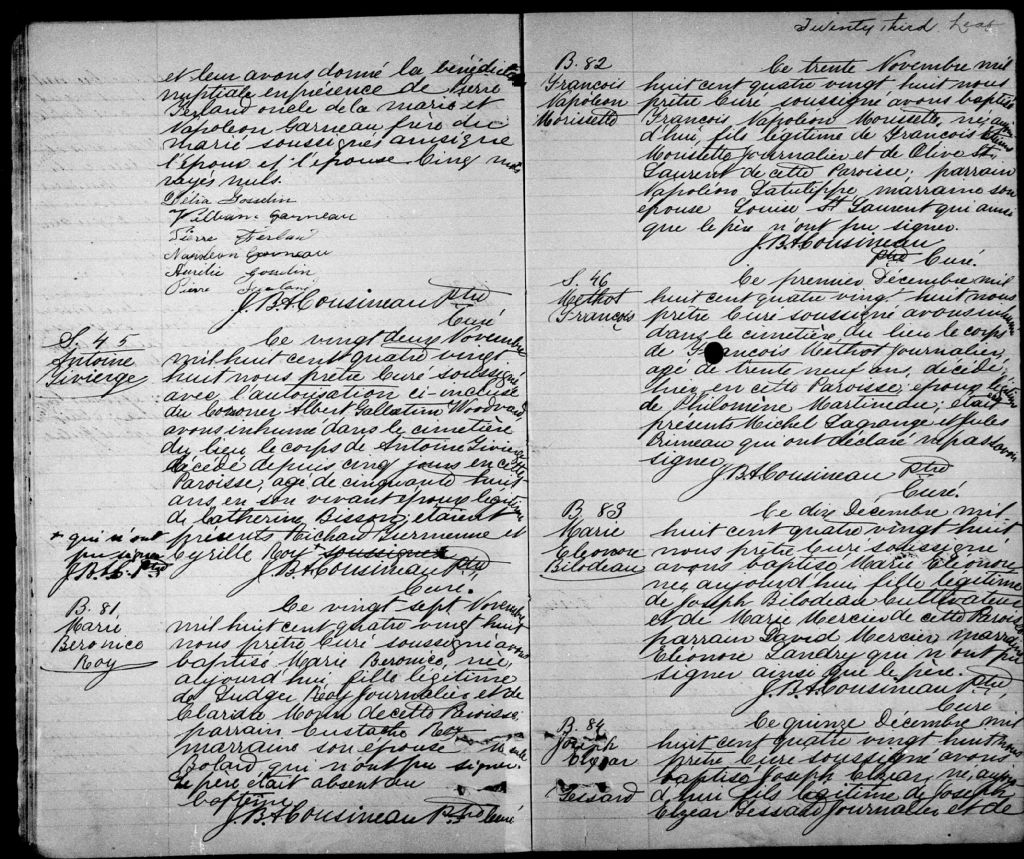 et leur avons donné la bénédiction
nuptiale en présence de Pierre
oncle de la marie et
Napoleon Garneau frère du
marié soussignés
l'époux et l'épouse Cinq mots
rayés nuls.
Délia Gosselin
William Garneau
Pierre
Napoleon Garneau
Aurélie Gosselin
Pierre
J. B. A. Cousineau Ptre
Curé
S. 45
Antoine
Vivierge
Ce vingt deux Novembre
mil huit cent quatre vingt
huit nous prêtre Curé soussigné
avec l'autorisation ci-incluse
du Coroner Albert Gallatin Woodward
avons inhumé dans le cimetière
du lieu le corps de Antoine
décédé depuis cinq jours en cette
Paroisse, agé de cinquante huit
ans en son vivant époux légitime
de Catherine Bisson; étaient
présents Richard et
Cyrille Roy soussignés
+ qui n'ont
pu signer
J. B. A. C. Ptre
J. B. A. Cousineau Ptre
Curé.
B. 81
Marie
Beronice
Roy
Ce vingt-sept Novembre
mil huit cent quatre vingt huit
nous prêtre Curé soussigné avons
baptisé Marie Beronice, née
aujourd'hui fille légitime
de Ludger Roy Journalier et de
Clarida Morin de cette Paroisse;
parrain Eustache Roy
marraine son épouse
qui n'ont pu signer.
Le père était absent au
baptême
J. B. A. Cousineau Ptre Curé
Twenty third Leaf
B. 82
François
Napoléon
Morissette
Ce trente Novembre mil
huit cent quatre vingt huit nous
prêtre Curé soussigné avons baptisé
François Napoléon Morissette, né aujour
d'hui, fils légitime de François
Morissette Journalier et de Olive St.
Laurent de cette Paroisse; parrain
Napoléon Latulippe, marraine son
épouse Louise St Laurent qui ainsi
que le père n'ont pu signer.
J. B. A. Cousineau
Ptre Curé.
S. 46
Methot
François
Ce premier Décembre mil
huit cent quatre vingt-huit nous
prêtre Curé soussigné avons inhumé
dans le cimetière du lieu le corps
de François Methot Journalier,
agé de trente neuf ans, décédé
hier en cette Paroisse; époux légitime
de Philomène Martineau; étaient
présents Michel Lagrange et Jules
Bruneau qui ont déclaré ne pas savoir
signer
J. B. A. Cousineau Ptre
Curé.
B. 83
Marie
Eléonore
Bilodeau
Ce dix Décembre mil
huit cent quatre vingt huit
nous prêtre Curé soussigné
avons baptisé Marie Eléonore
née aujourd'hui fille légitime
de Joseph Bilodeau Cultivateur
et de Marie Mercier de cette Paroisse
parrain David Mercier, marraine
Eléonore Landry qui n'ont pu
signer ainsi que le père.
J. B. A. Cousineau Ptre
Curé
B. 84
Joseph
Elzéar
Lessard
Ce quinze Décembre mil
huit cent quatre vingt huit nous
prêtre Curé soussigné avons
baptisé Joseph Elzéar, né aujour
d'hui fils légitime de Joseph
Elzéar Lessard Journalier et de